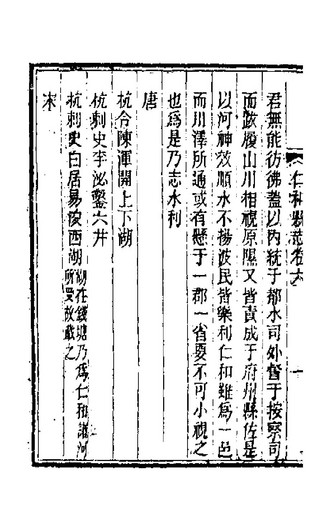 仁和縣志卷六
君無能彷彿蓋以內統于都水司外督于按察司
而敂履山川相視原隰又皆責成于府州縣佐是
以河神效順水不揚波民皆樂利仁和雖爲一邑
而川澤所通或有懸于一郡一省要不可小視之
也爲是乃志水利
唐
杭令陳渾開上下湖
杭刺史李泌鑿六井
杭刺史白居易倰西湖湖在錢塘乃爲仁和諸河所受故載之
宋